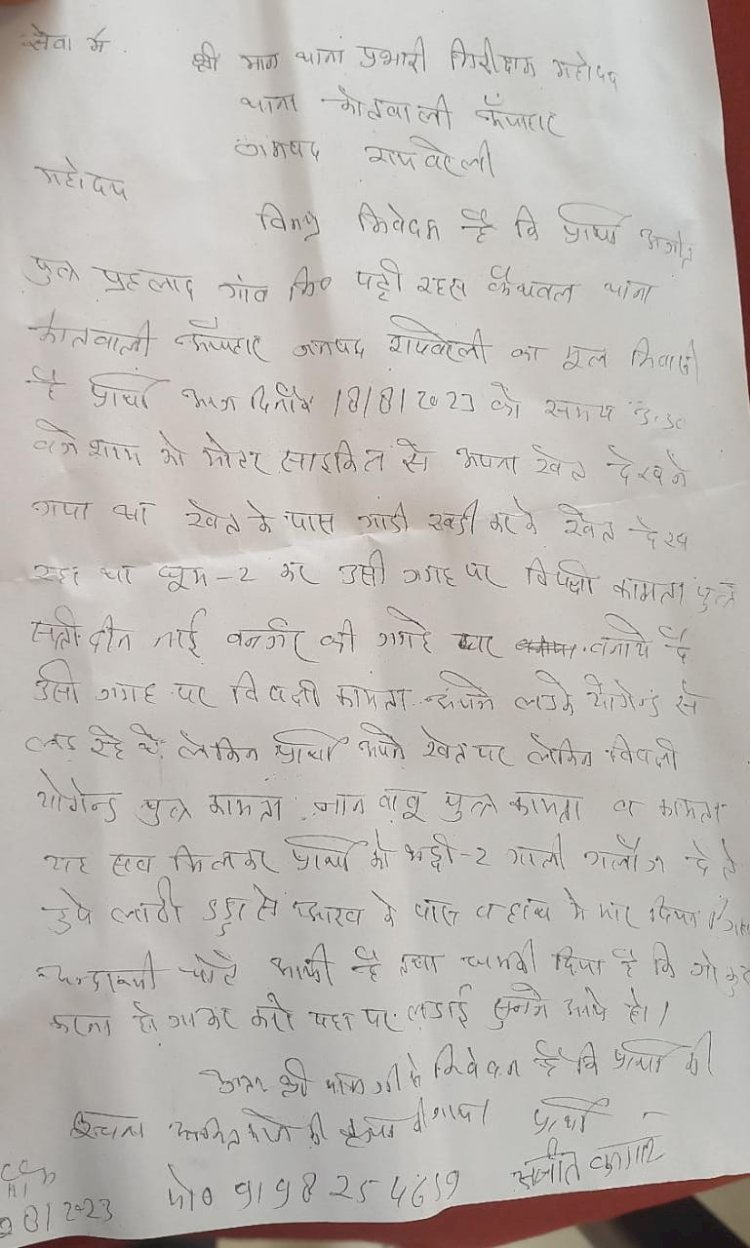 सेवा में
श्री मान थाना प्रभारी निरीक्षक महोदय
थाना कोतवाली ऊँचाहार
जनपद रायबरेली
महोदय
विनम्र निवेदन है कि प्रार्थी अजीत
पुत्र प्रहलाद गांव नि० पट्टी रहस कैथवल थाना
कोतवाली ऊँचाहार जनपद रायबरेली का मूल निवासी
है प्रार्थी आज दिनाँक 18/8/2023 को समय 5.30
बजे शाम को मोटर साइकिल से अपना खेत देखने
गया था खेत के पास गाडी खडी कर के खेत देख
रहा था घूम-2 कर उसी जगह पर विपक्षी कामता पुत्र
दीन नाई बन्जर की जगह पर बनाये है
उसी जगह पर विपक्षी कामता अपने लडके योगेन्द्र से
लड रहे थे लेकिन प्रार्थी अपने खेत पर लेकिन विपक्षी
योगेन्द्र पुत्र कामता ज्ञान बाबू पुत्र कामता व कामता
यह सब मिलकर प्रार्थी को भद्दी-2 गाली गलौज देते
हुये लाठी डंडा से आंख के पास व हाथ में मार दिया
अन्दरूनी चोटे आयी है तथा धमकी दिया है कि जो कुछ
करना हो जाकर करो यहा पर लडाई सुनने आये हो।
अतः श्री मान जी से निवेदन है कि प्रार्थी की
सूचना अंकित करने की कृपा की जाय। प्रार्थी
मो० 9198254659 अजीत कुमार
8/2023